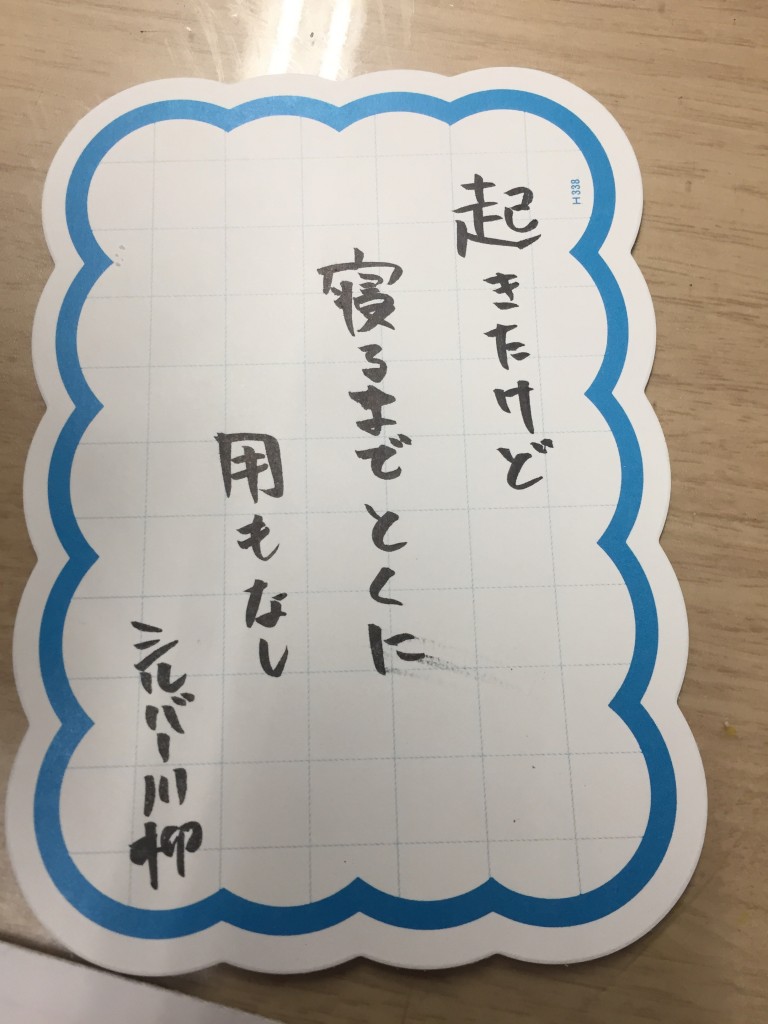 起きたけど
寝るまでとくに
用もなし
シルバー川柳
H338